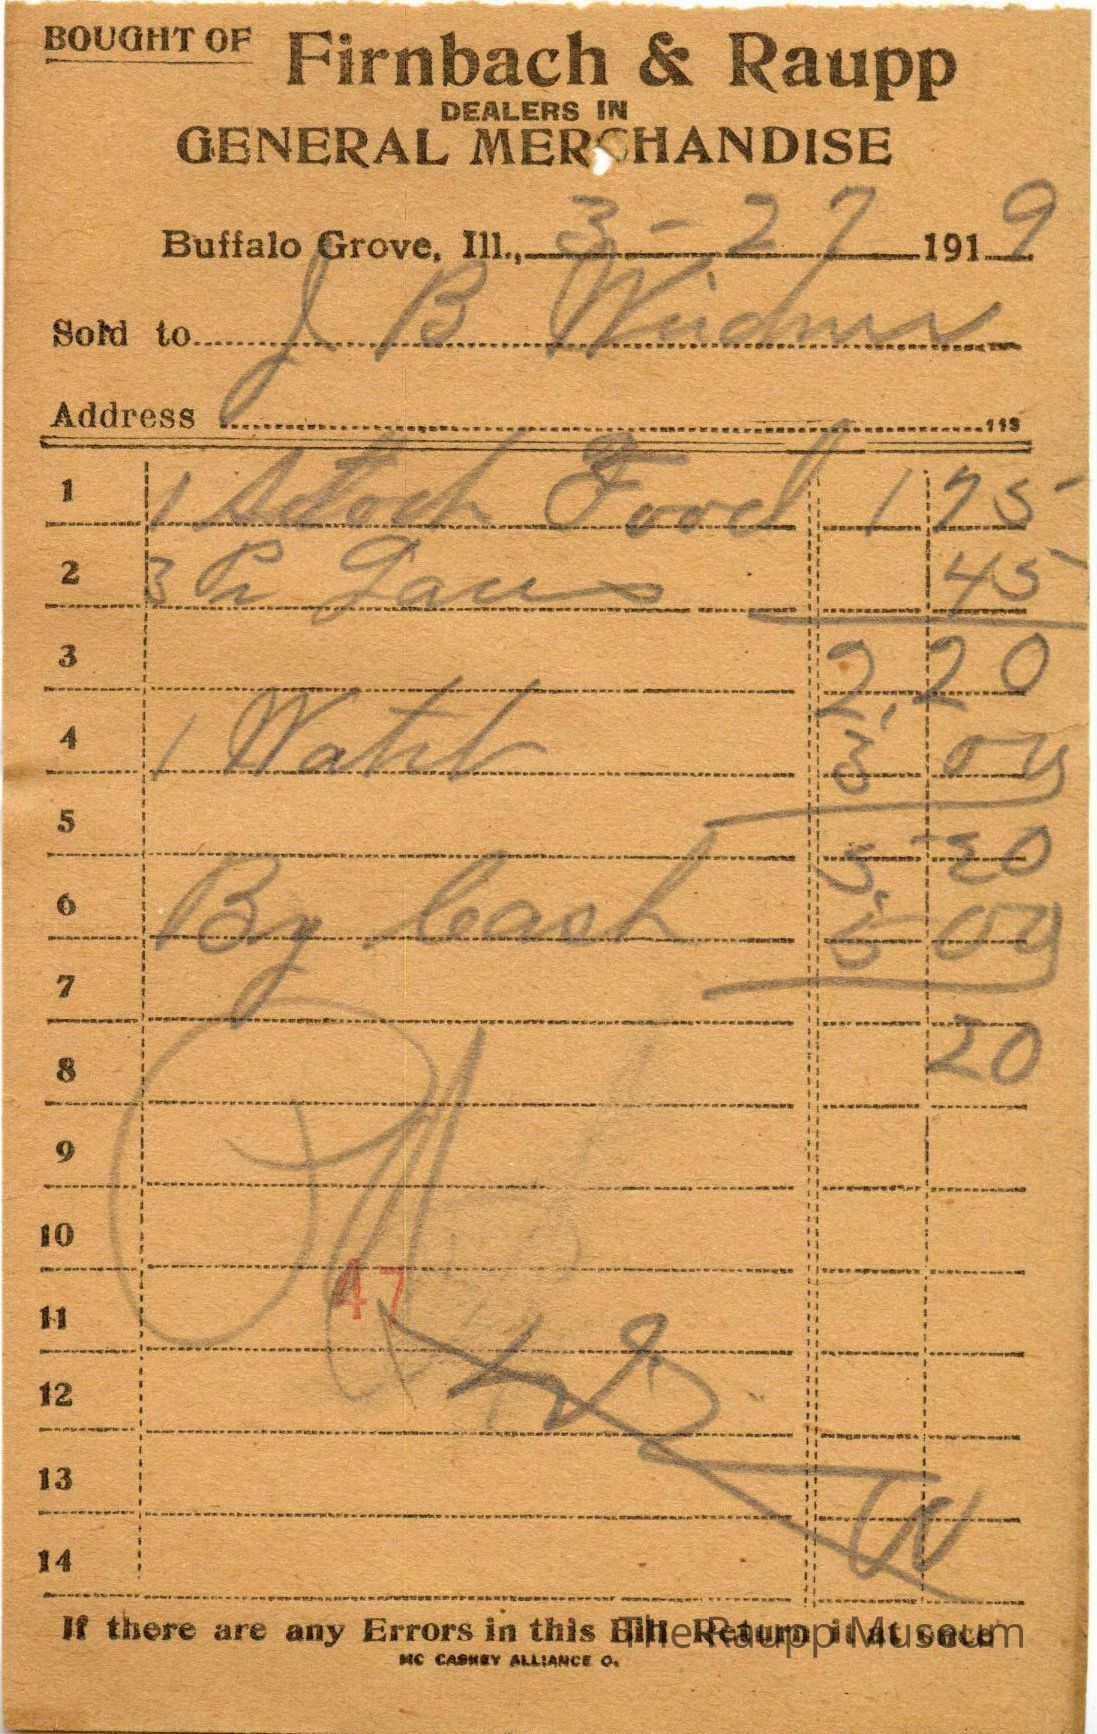 BOUGHT OF Firnbach & Raupp
DEALERS IN
GENERAL MERCHANDISE
Buffalo Grove, Ill., 3-27 1919
Sold to J B
Address 113
1 1 Stock Food 1 75
2 3 Pr 45
3 2,20
4 1 3 00
5 5,20
6 By Cash 5 00
7
8 20
9
10
47
11
12
13
14
If there are any Errors in this Bill Return it at once
The Raupp Museum
MC CASKEY ALLIANCE O.